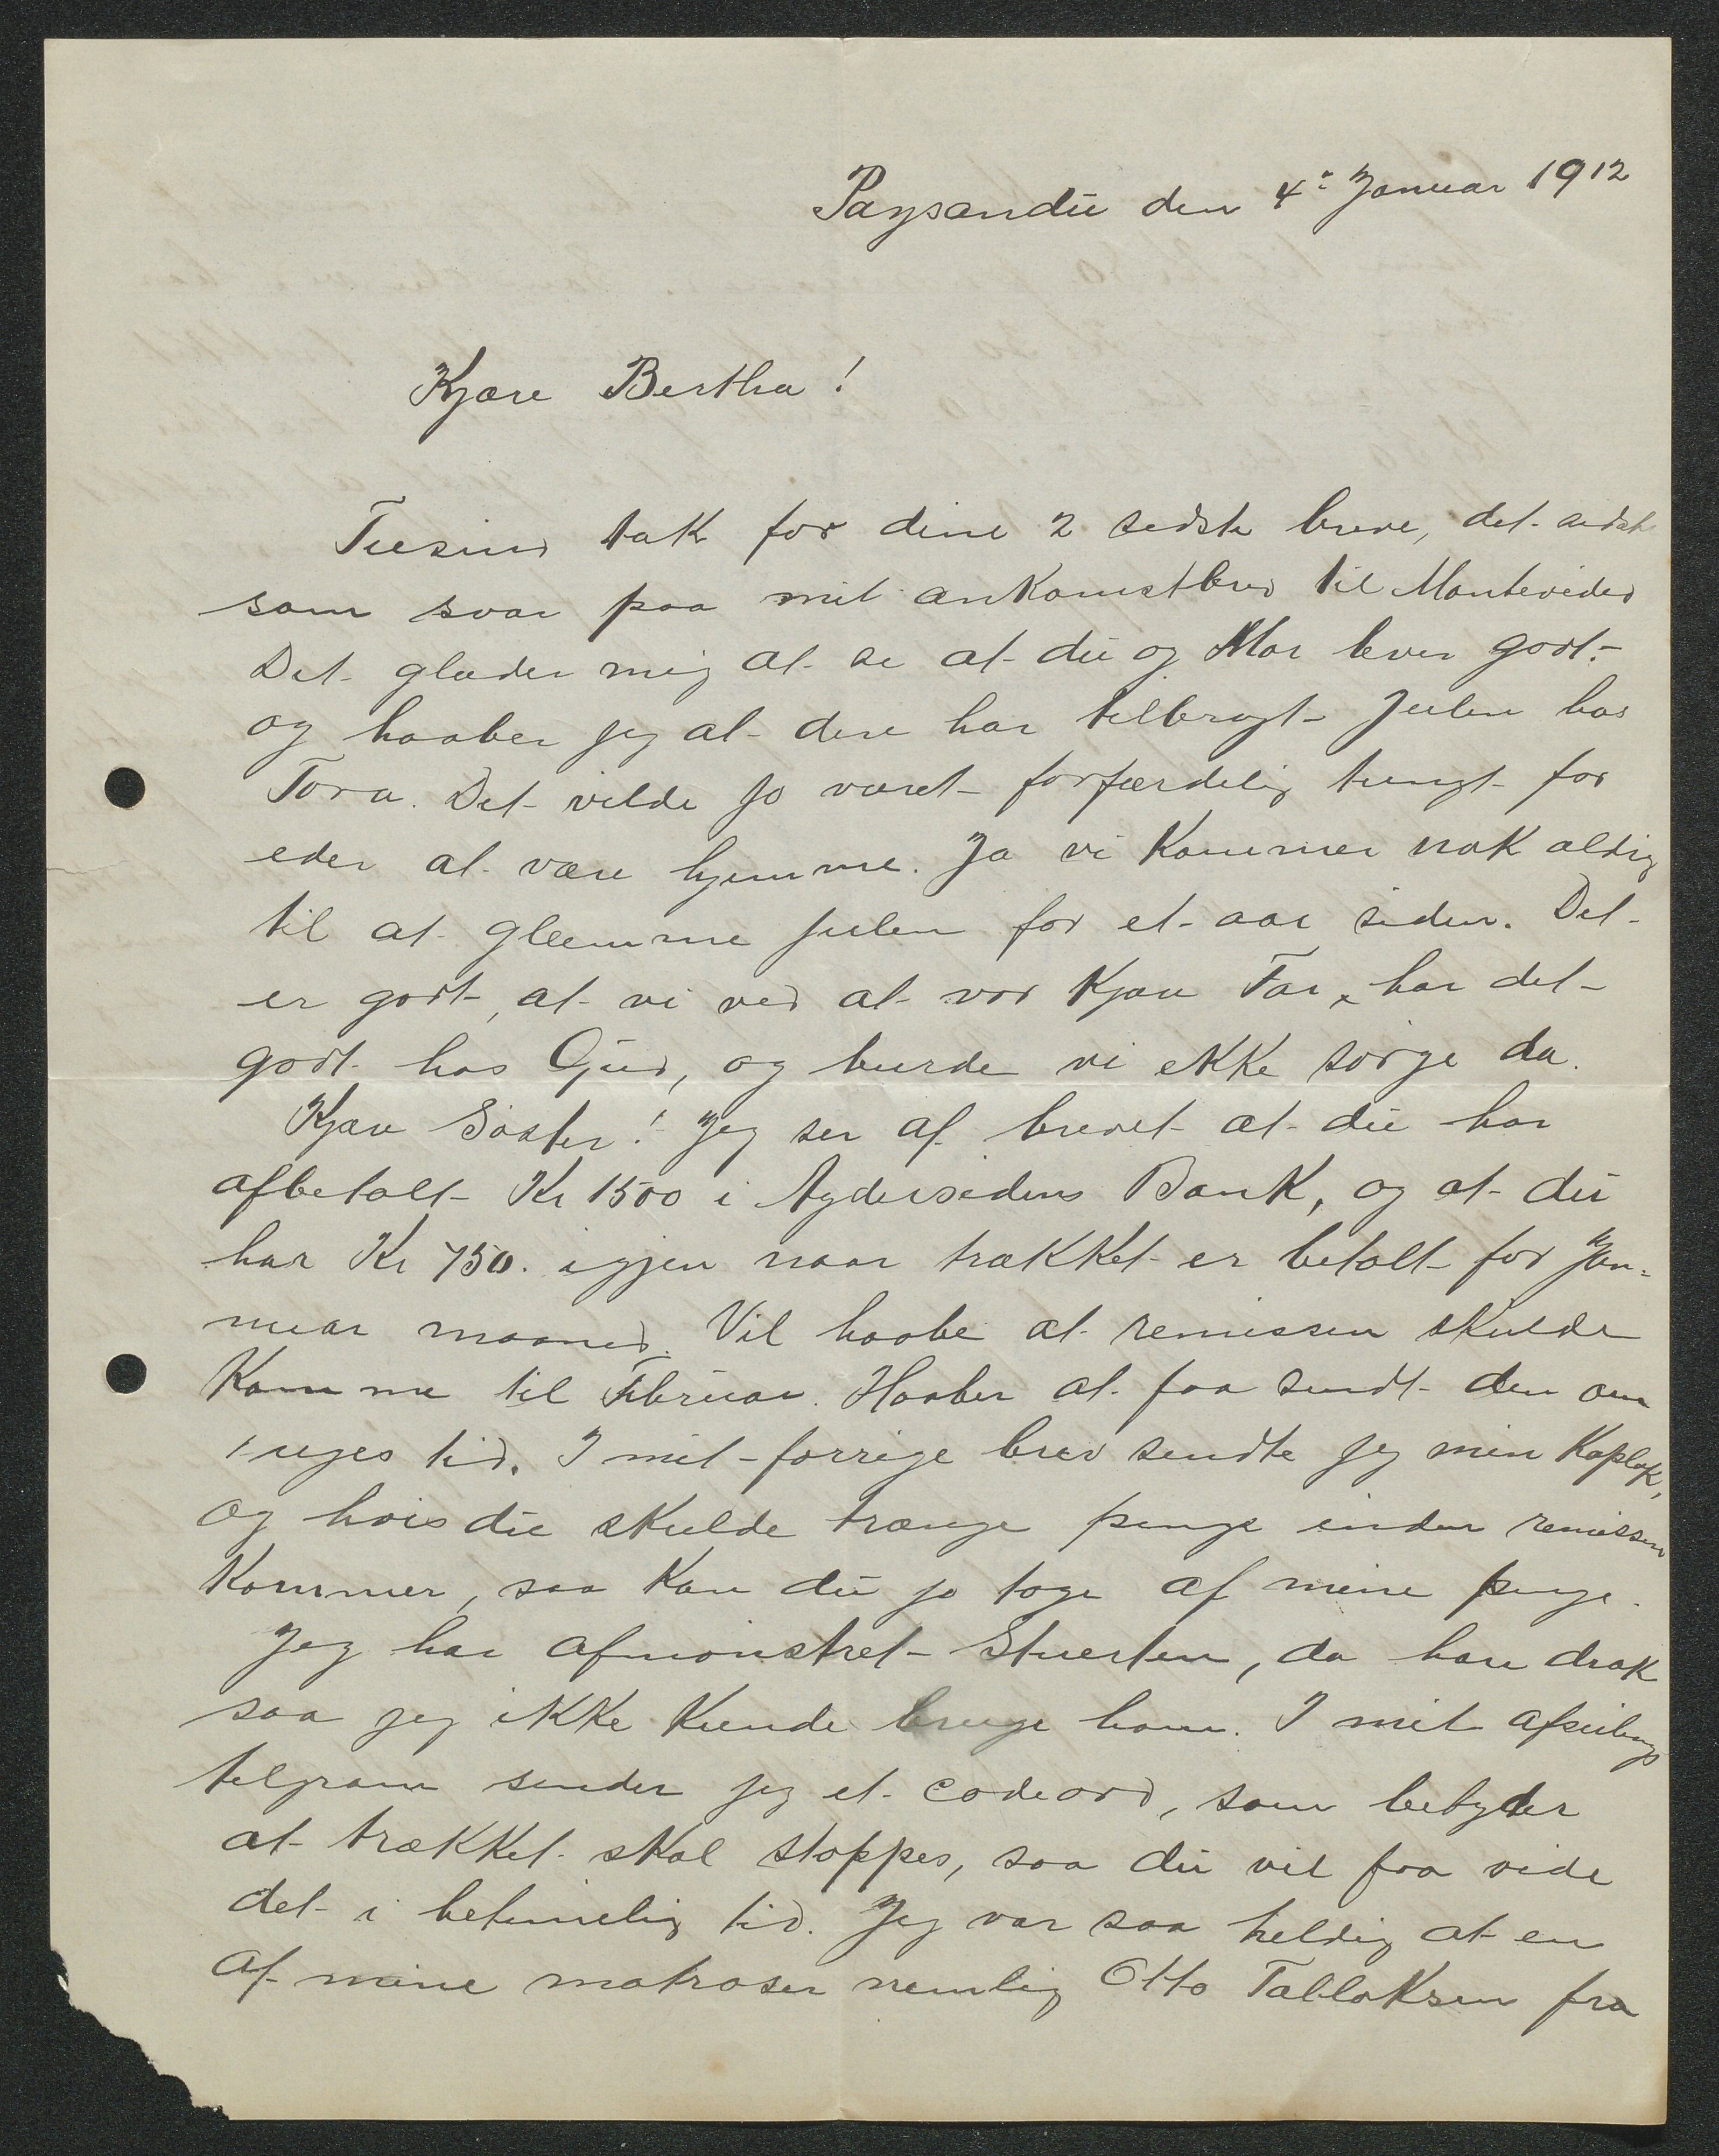 Paysandú den 4de Januar 1912
Kjære Bertha!
Tusind tak for dine 2 sidste breve, det sidste
som svar paa mit ankomstbrev til Montevideo
Det glæder mig at se at du og Mor lever godt.-
og haaber jeg at dere har tilbragt Julen hos
Tora. Det vilde jo været forfærdelig tungt for
eder at være hjemme. Ja vi kommer nok aldrig
til at glemme julen for et aar siden. Det
er godt, at vi ved at vor kjære Far, har det
godt hos Gud, og burde vi ikke sörge da.
Kjære Söster! Jeg ser af brevet at du har
afbetalt Kr 1500 i Agdersidens Bank, og at du
har Kr 750. igjen naar trækket er betalt for Jan=
nuar maaned. Vil haabe at remissen skulde
komme til Februar. Haaber at faa sendt den om
1 uges tid. I mit forrige brev sendte jeg min Kaplak,
og hvis du skulde trænge penge inden remissen
kommer, saa kan du jo tage af mine penge.
Jeg har afmönstret Stuerten, da han drak
saa jeg ikke kunde bruge ham. I mit afseilings
telgram sender jeg et codeord, som betyder
at trækket skal stoppes, saa du vil faa vide
det i betimelig tid. Jeg var saa heldig at en
af mine matroser nemlig Otto Tallaksen fra